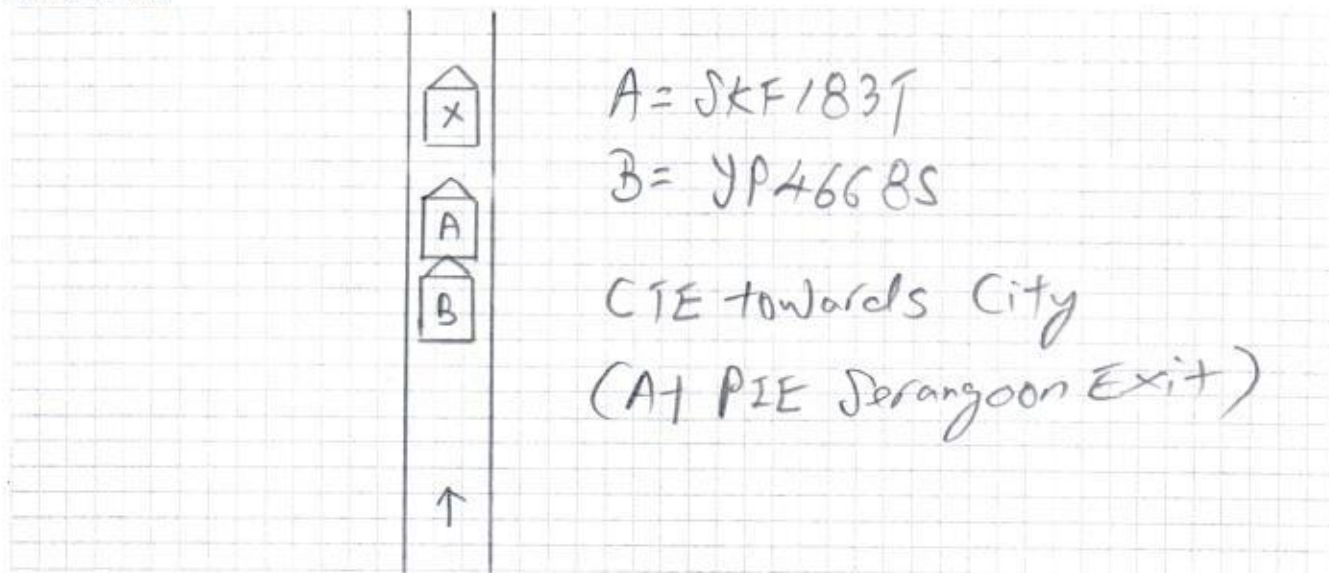 X
A
B
A = SKF183T
B = YP4668S
CTE towards City
(At PIE Serangoon Exit)